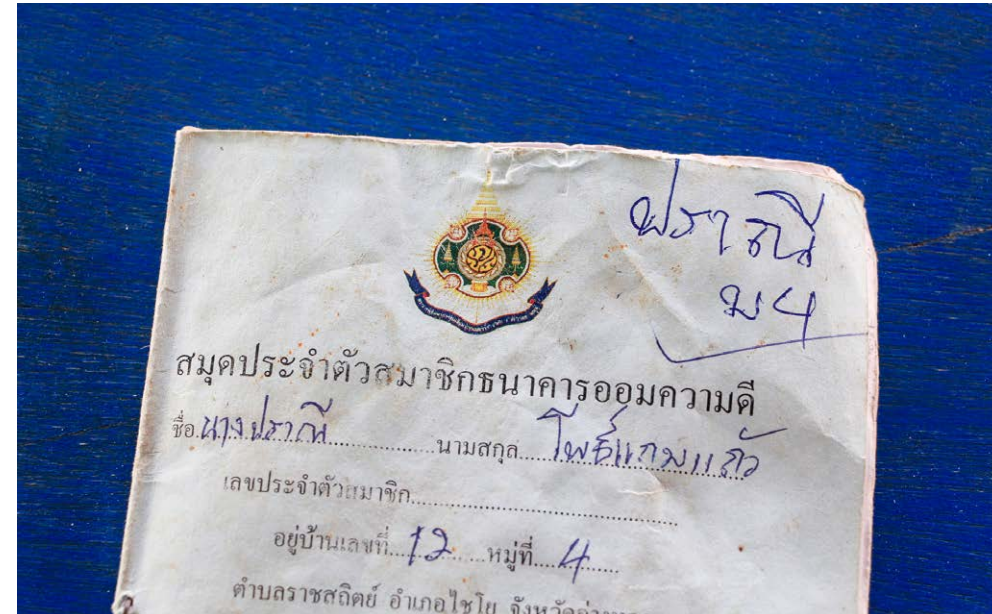 ปราณี
ม4
สมุดประจำตัวสมาชิกธนาคารออมความดี
ชื่อ นางปราณี นามสกุล โพธิ์แกมแก้ว
เลขประจำตัวสมาชิก
อยู่บ้านเลขที่ 12 หมู่ที่ 4
ตำบลราชสถิตย์ อำเภอไชโย จังหวัด